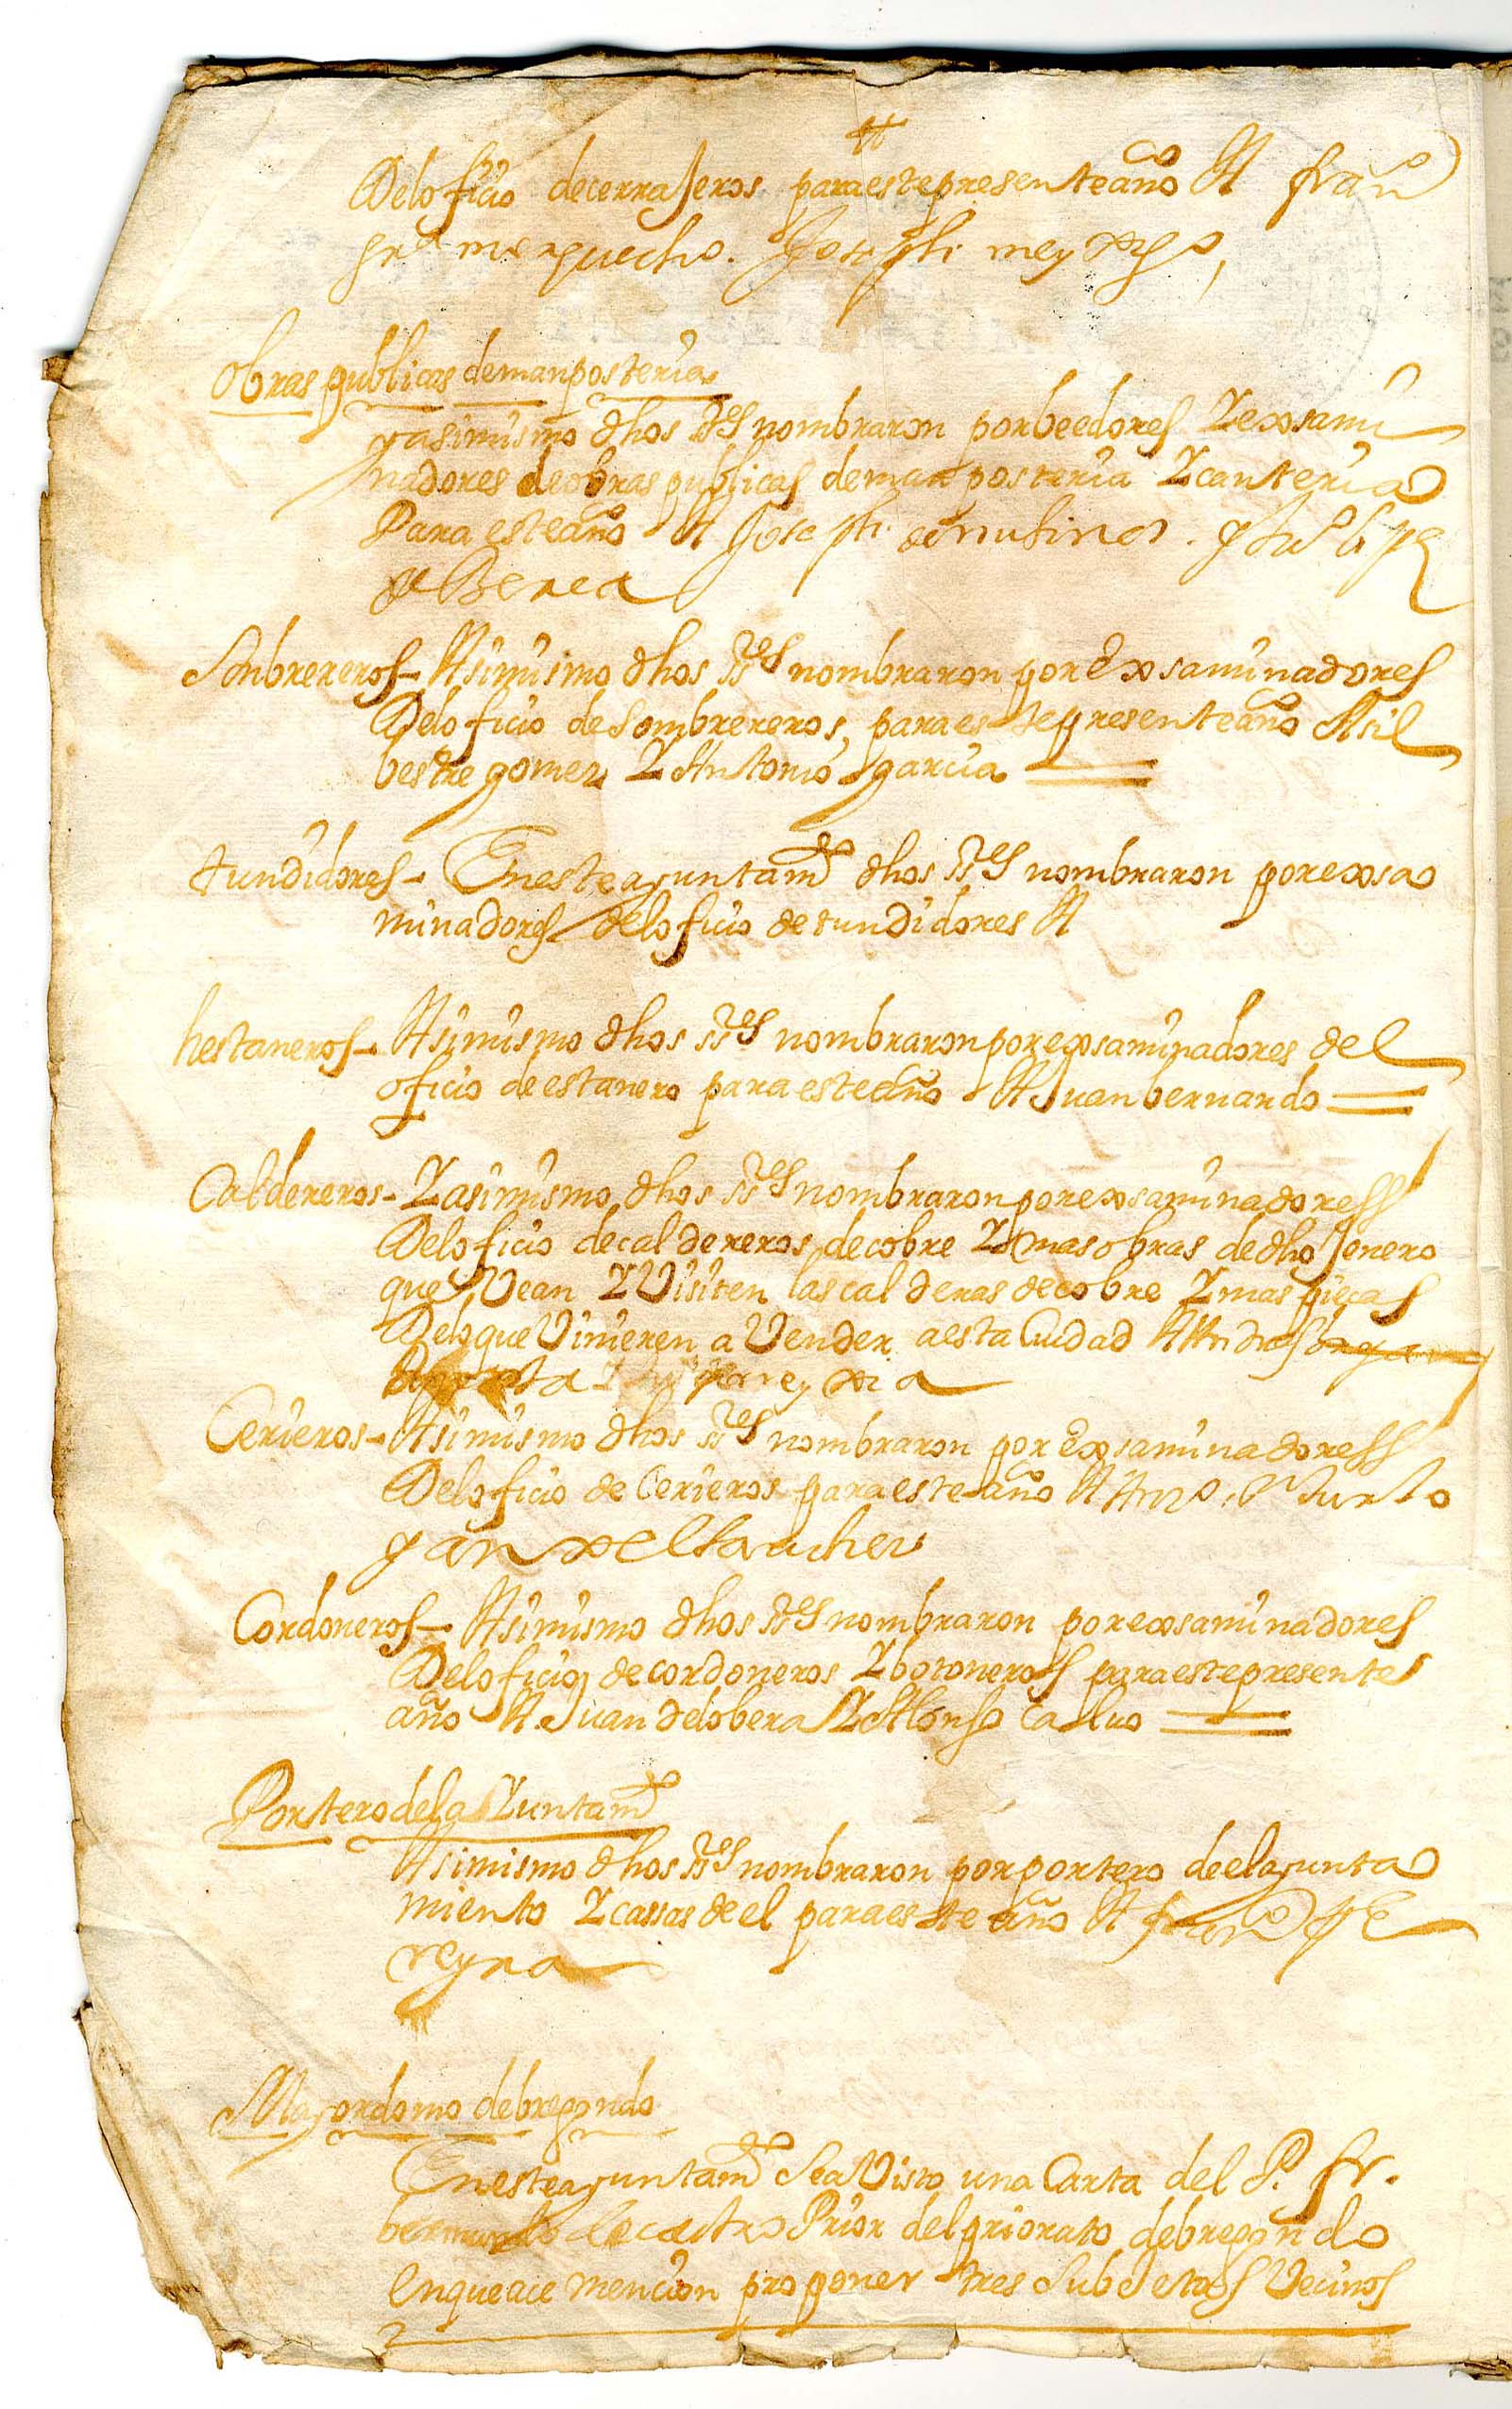 Del oficio de cerrajeros para este presente año A fran^co
Joseph
obras publicas de manposterias
y asimismo dhos ss^res nombraron por beedores Y exsami
nadores de obras publicas de manposteria Y canteria
Para este año A Joseph
de Berea
Sonbrereros - Asimismo dhos ss^res nombraron por Exsaminadores
Del oficio de sombrereros, para este presente año A sil
bestre gomez Y Antonio garcia
tundidores - En este ayuntam^to dhos ss^res nombraron por exsa
minadores del oficio de tundidores A
hestaneros - Asimismo dhos ss^res nombraron por exsaminadores del
oficio de estanero para este año A Juan bernardo
Caldereros - Y asimismo dhos ss^res nombraron por exsaminadores
Del oficio de caldereros de cobre Y mas obras de dho Jenero
que Vean Y Visiten las calderas de cobre Y mas pieças
De lo que Vinieren a Vender a esta Ciudad A Andres
Cerieros - Asimismo dhos ss^res nombraron por Exsaminadores
Del oficio de Cerieros para este año A
Cordoneros - Asimismo dhos ss^res nombraron por exsaminadores
Del oficio de cordoneros Y botoneros para este presente
año A Juan de lobera Y Alonso Calvo
Portero del aYuntam^to
Asimismo dhos ss^res nombraron por portero de el ayunta
miento Y cassas de el para este año A fran^co
reyna
Mayordomo de bregondo
En este ayuntam^to Sea Visto una Carta del P. fr.
de castro Prior del priorato de bregondo
En que ace mencion proponer tres Subjetos Vecinos